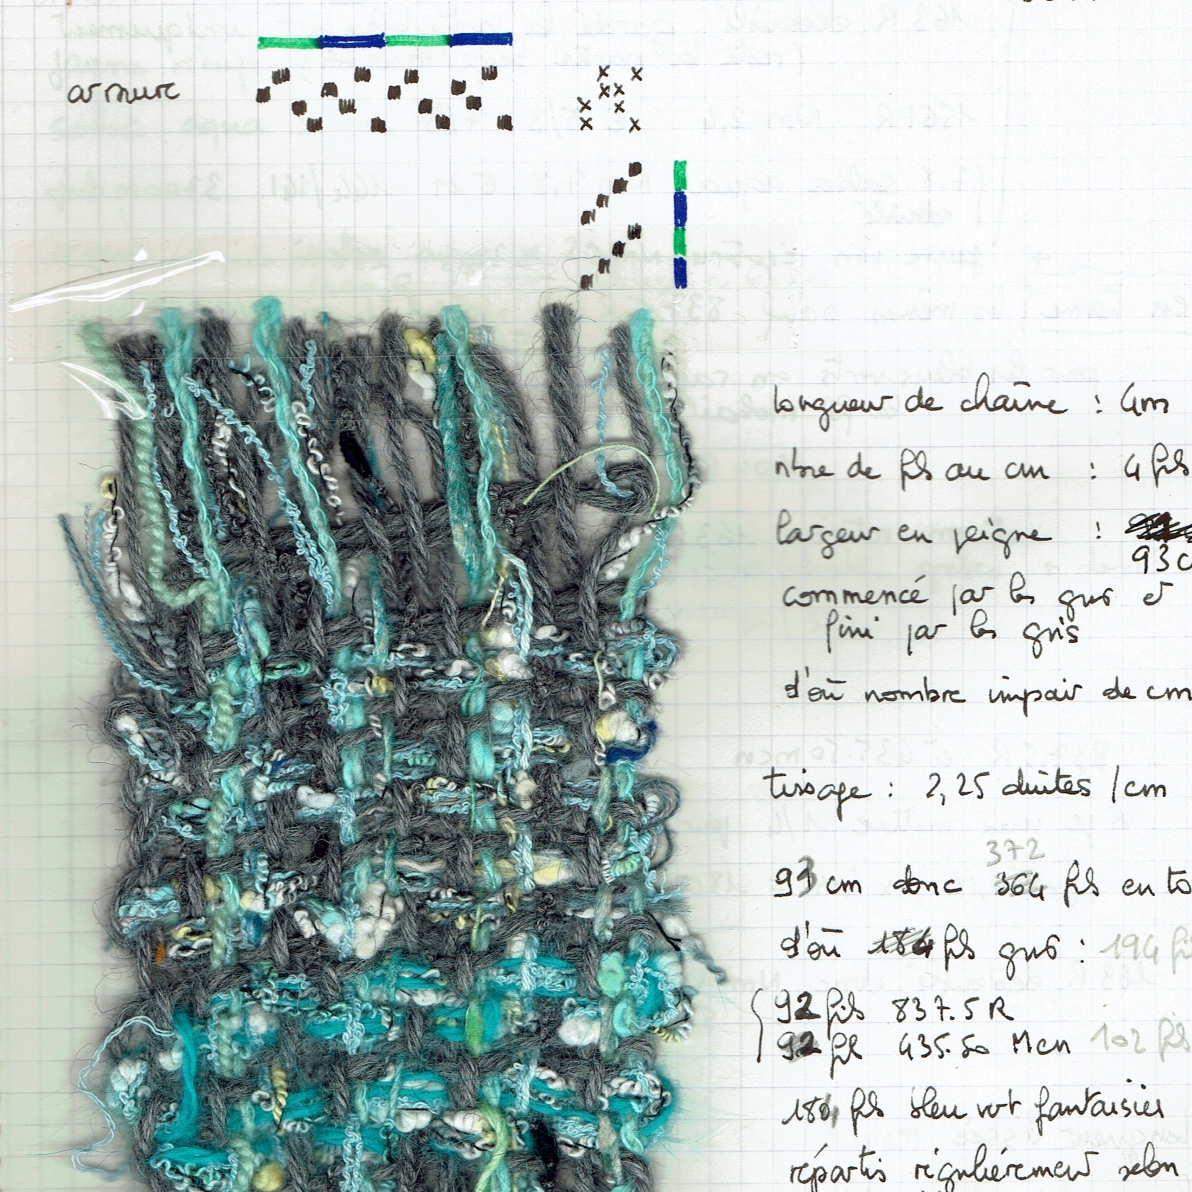 armure
longueur de chaîne : 4m
nbre de fils au cm : 4 fils
largeur en peigne :
93 c
commencé par les gris et
fini par les gris
d'où nombre impair de cm
tissage : 2,25 duites / cm
372
93 cm donc 364 fils en to
d'où 184 fils gris : 194 fi
92 fils 837.5 R
92 fils 435.50 Mcn 102 fils
fils bleu vert fantaisies
répartis régulièrement selon